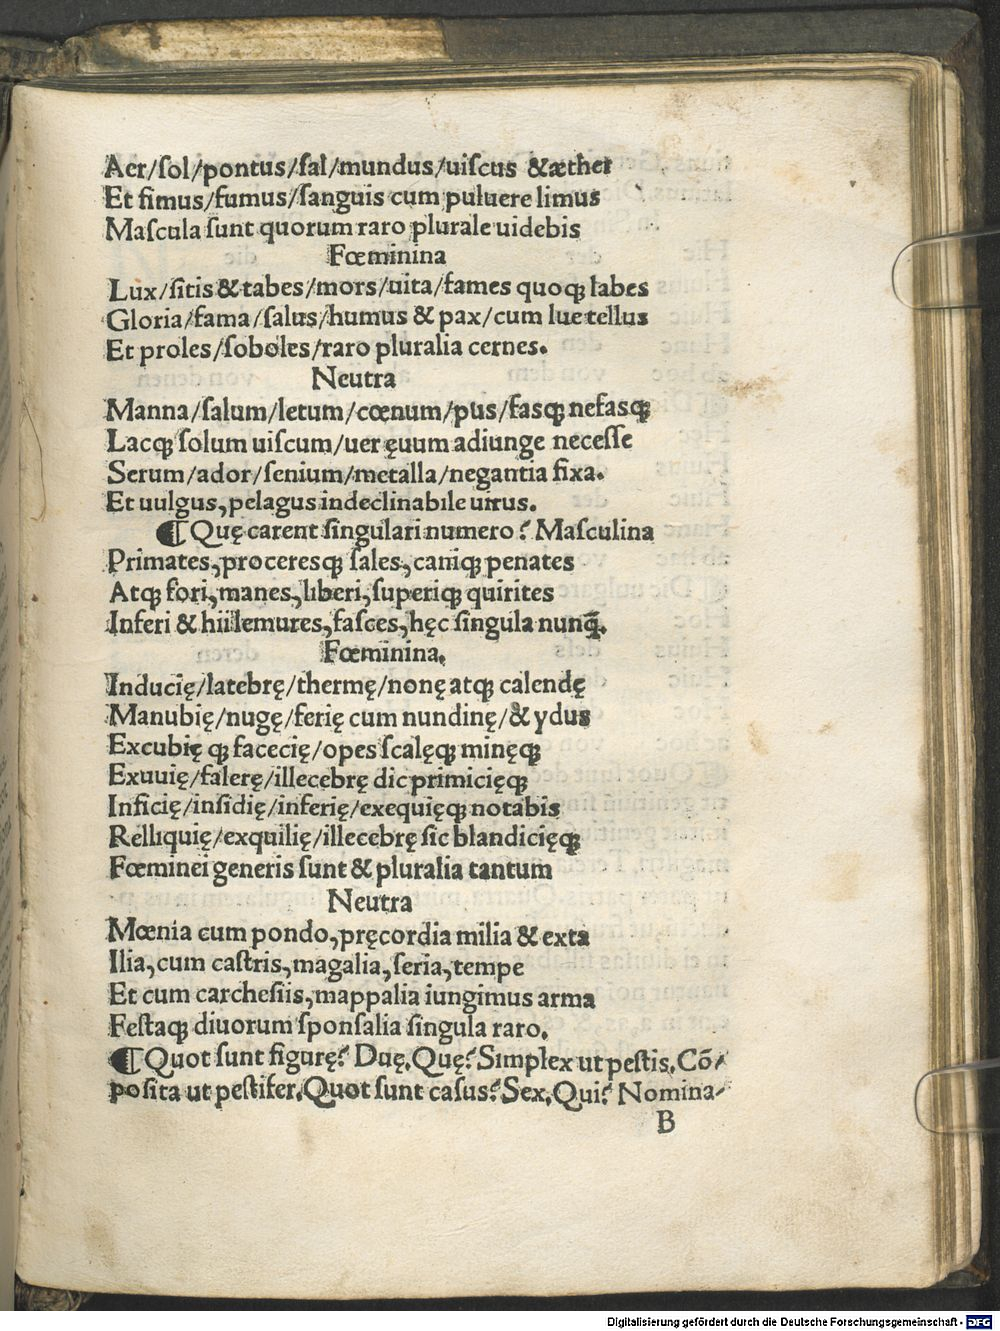 Aer/ſol/pontus/ſal/mundus/uiſcus &æther
Et fimus/fumus/ſanguis cum puluere limus
Maſcula ſunt quorum raro plurale uidebis
Fœminina
Lux/ſitis & tabes/mors/uita/fames quoqꝫ labes
Gloria/fama/ſalus/humus & pax/cum lue tellus
Et proles/ſoboles/raro pluralia cernes.
Neutra
Manna/ſalum/letum/cœnum/pus/faſqꝫ nefaſqꝫ
Lacqꝫ ſolum uiſcum/uer ęuum adiunge neceſſe
Serum/ador/ſenium/metalla/negantia fixa.
Et uulgus, pelagus indeclinabile uirus.
¶ Quę carent ſingulari numero? Maſculina
Primates, procereſqꝫ ſales, caniqꝫ penates
Atqꝫ fori, manes, liberi, ſuperiqꝫ quirites
Inferi & hi ilemures, faſces, hęc ſingula nunꝗ̄.
Fœminina.
Inducię/latebrę/thermę/nonę atqꝫ calendę
Manubię/nugę/ferię cum nundinę/& ydus
Excubię qꝫ facecię/opes ſcalęqꝫ minęqꝫ
Exuuię/falerę/illecebrę dic primicięqꝫ
Inficię/inſidię/inferię/exequięqꝫ notabis
Relliquię/exquilię/illecebrę ſic blandicięqꝫ
Fœminei generis ſunt & pluralia tantum
Neutra
Mœnia cum pondo, pręcordia milia & exta
Ilia, cum caſtris, magalia, ſeria, tempe
Et cum carcheſiis, mappalia iungimus arma
Feſtaqꝫ diuorum ſponſalia ſingula raro.
¶ Quot ſunt figurę? Duę. Quę? Simplex ut peſtis. Cō/
poſita ut peſtifer. Quot ſunt caſus? Sex. Qui? Nomina/
B
Digitalisierung gefördert durch die Deutsche Forschungsgemeinschaft - DFG